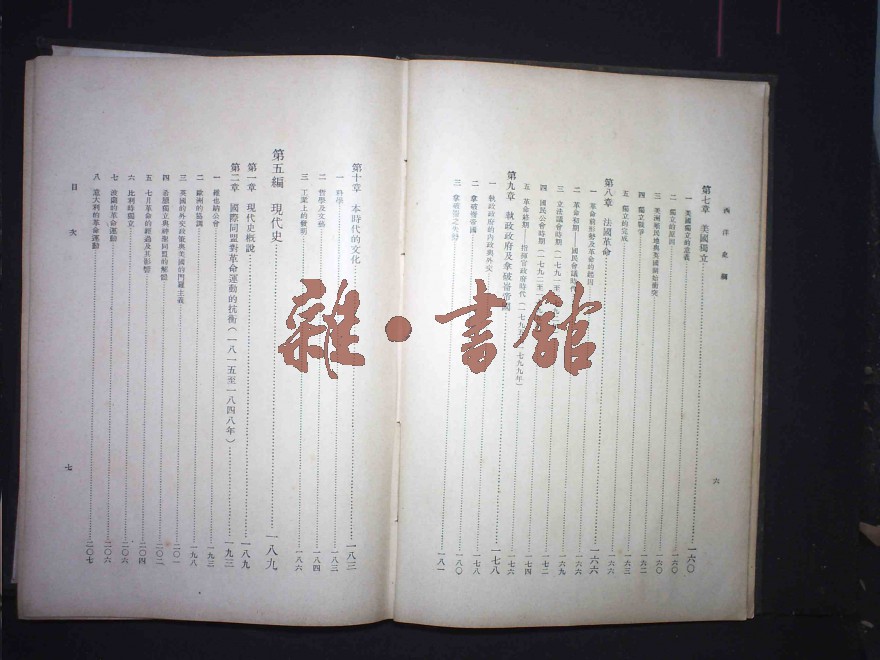 西洋史綱
第七章 美國獨立 一六〇
一 美國獨立的意義 一六〇
二 獨立的原因 一六〇
三 美洲殖民地與英國開始衝突 一六〇
四 獨立戰爭 一六二
五 獨立的完成 一六三
第八章 法國革命 一六六
一 革命前形勢及革命的起因 一六六
二 革命初期 國民會議時代 一六八
三 立法議會時期
四 國民公會時期 一七二
五 革命終期 指揮官政府時代(一七九五至一七九九年) 一七六
第九章 執政政府及拿破崙帝國 一七八
一 執政政府的內政與外交
二 拿破崙帝國 一七八
三 拿破崙之失勢 一八〇
一八一
六
第十章 本時代的文化 一八三
一 科學 一八三
二 哲學及文藝 一八四
三 工業上的發明 一八六
第五編 現代史 一八九
第一章 現代史概說 一八九
第二章 國際同盟對革命運動的抗衡(一八一五至一八四八年) 一九三
一 維也納公會 一九三
二 歐洲的協調 一九八
三 英國的外交政策與美國的門羅主義 二〇一
四 希臘獨立與神聖同盟的解體 二〇二
五 七月革命的經過及其影響 二〇四
六 比利時獨立 二〇六
七 波蘭的革命運動 二〇六
八 意大利的革命運動 二〇七
目次
七
雜·書館